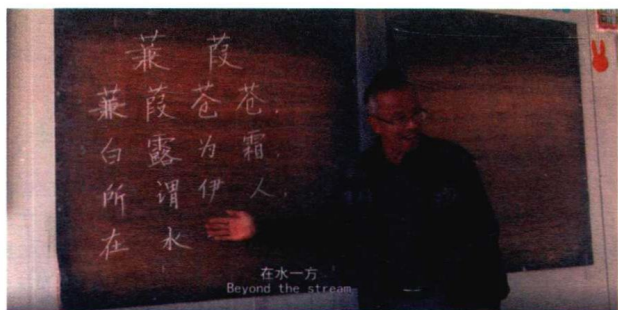 蒹 葭
蒹 葭 苍 苍，
白 露 为 霜．
所 谓 伊 人，
在 水
在水一方
Beyond the stream